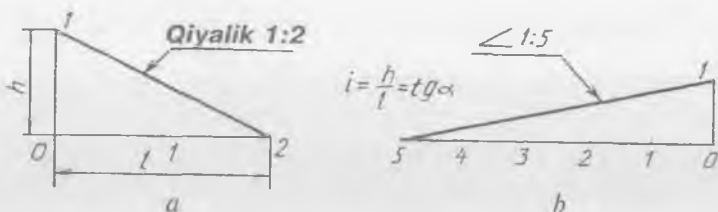 1
Qiyalik 1:2
h
0 1 2
l
a
∠ 1:5
i = h/l = tgα
1
5 4 3 2 1 0
b